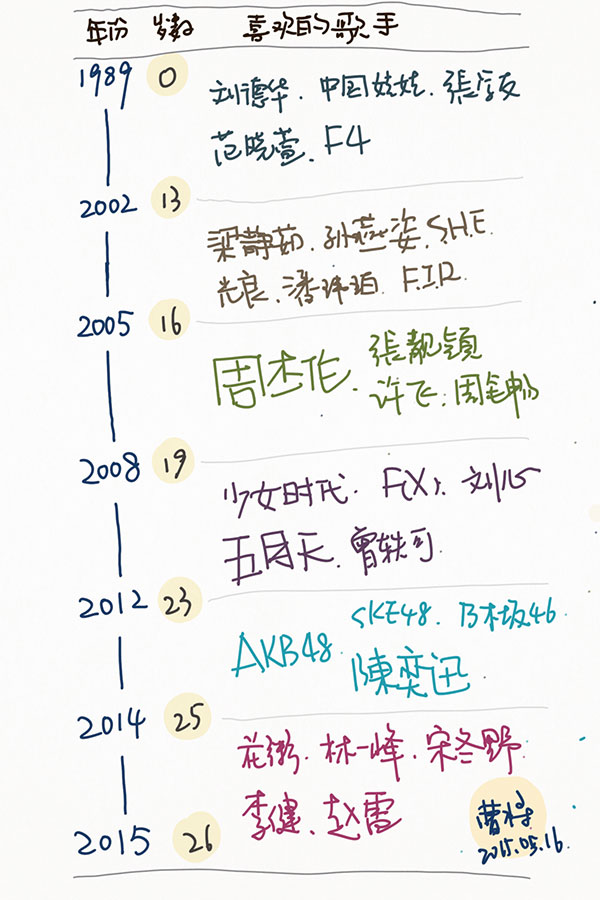 年份 岁数 喜欢的歌手
1989 0 刘德华. 中国娃娃. 張学友
范晓萱. F4
2002 13
梁静茹. 孙燕姿. S.H.E.
光良. 潘玮珀. F.I.R.
2005 16
周杰伦. 張靓颖
许飞. 周笔畅
2008 19
少女时代. F(X). 刘心
五月天. 曾轶可.
2012 23
AKB48. SKE48. 乃木坂46.
陳奕迅
2014 25
花粥. 林一峰. 宋冬野
李健. 赵雷
2015 26
2015.05.16.